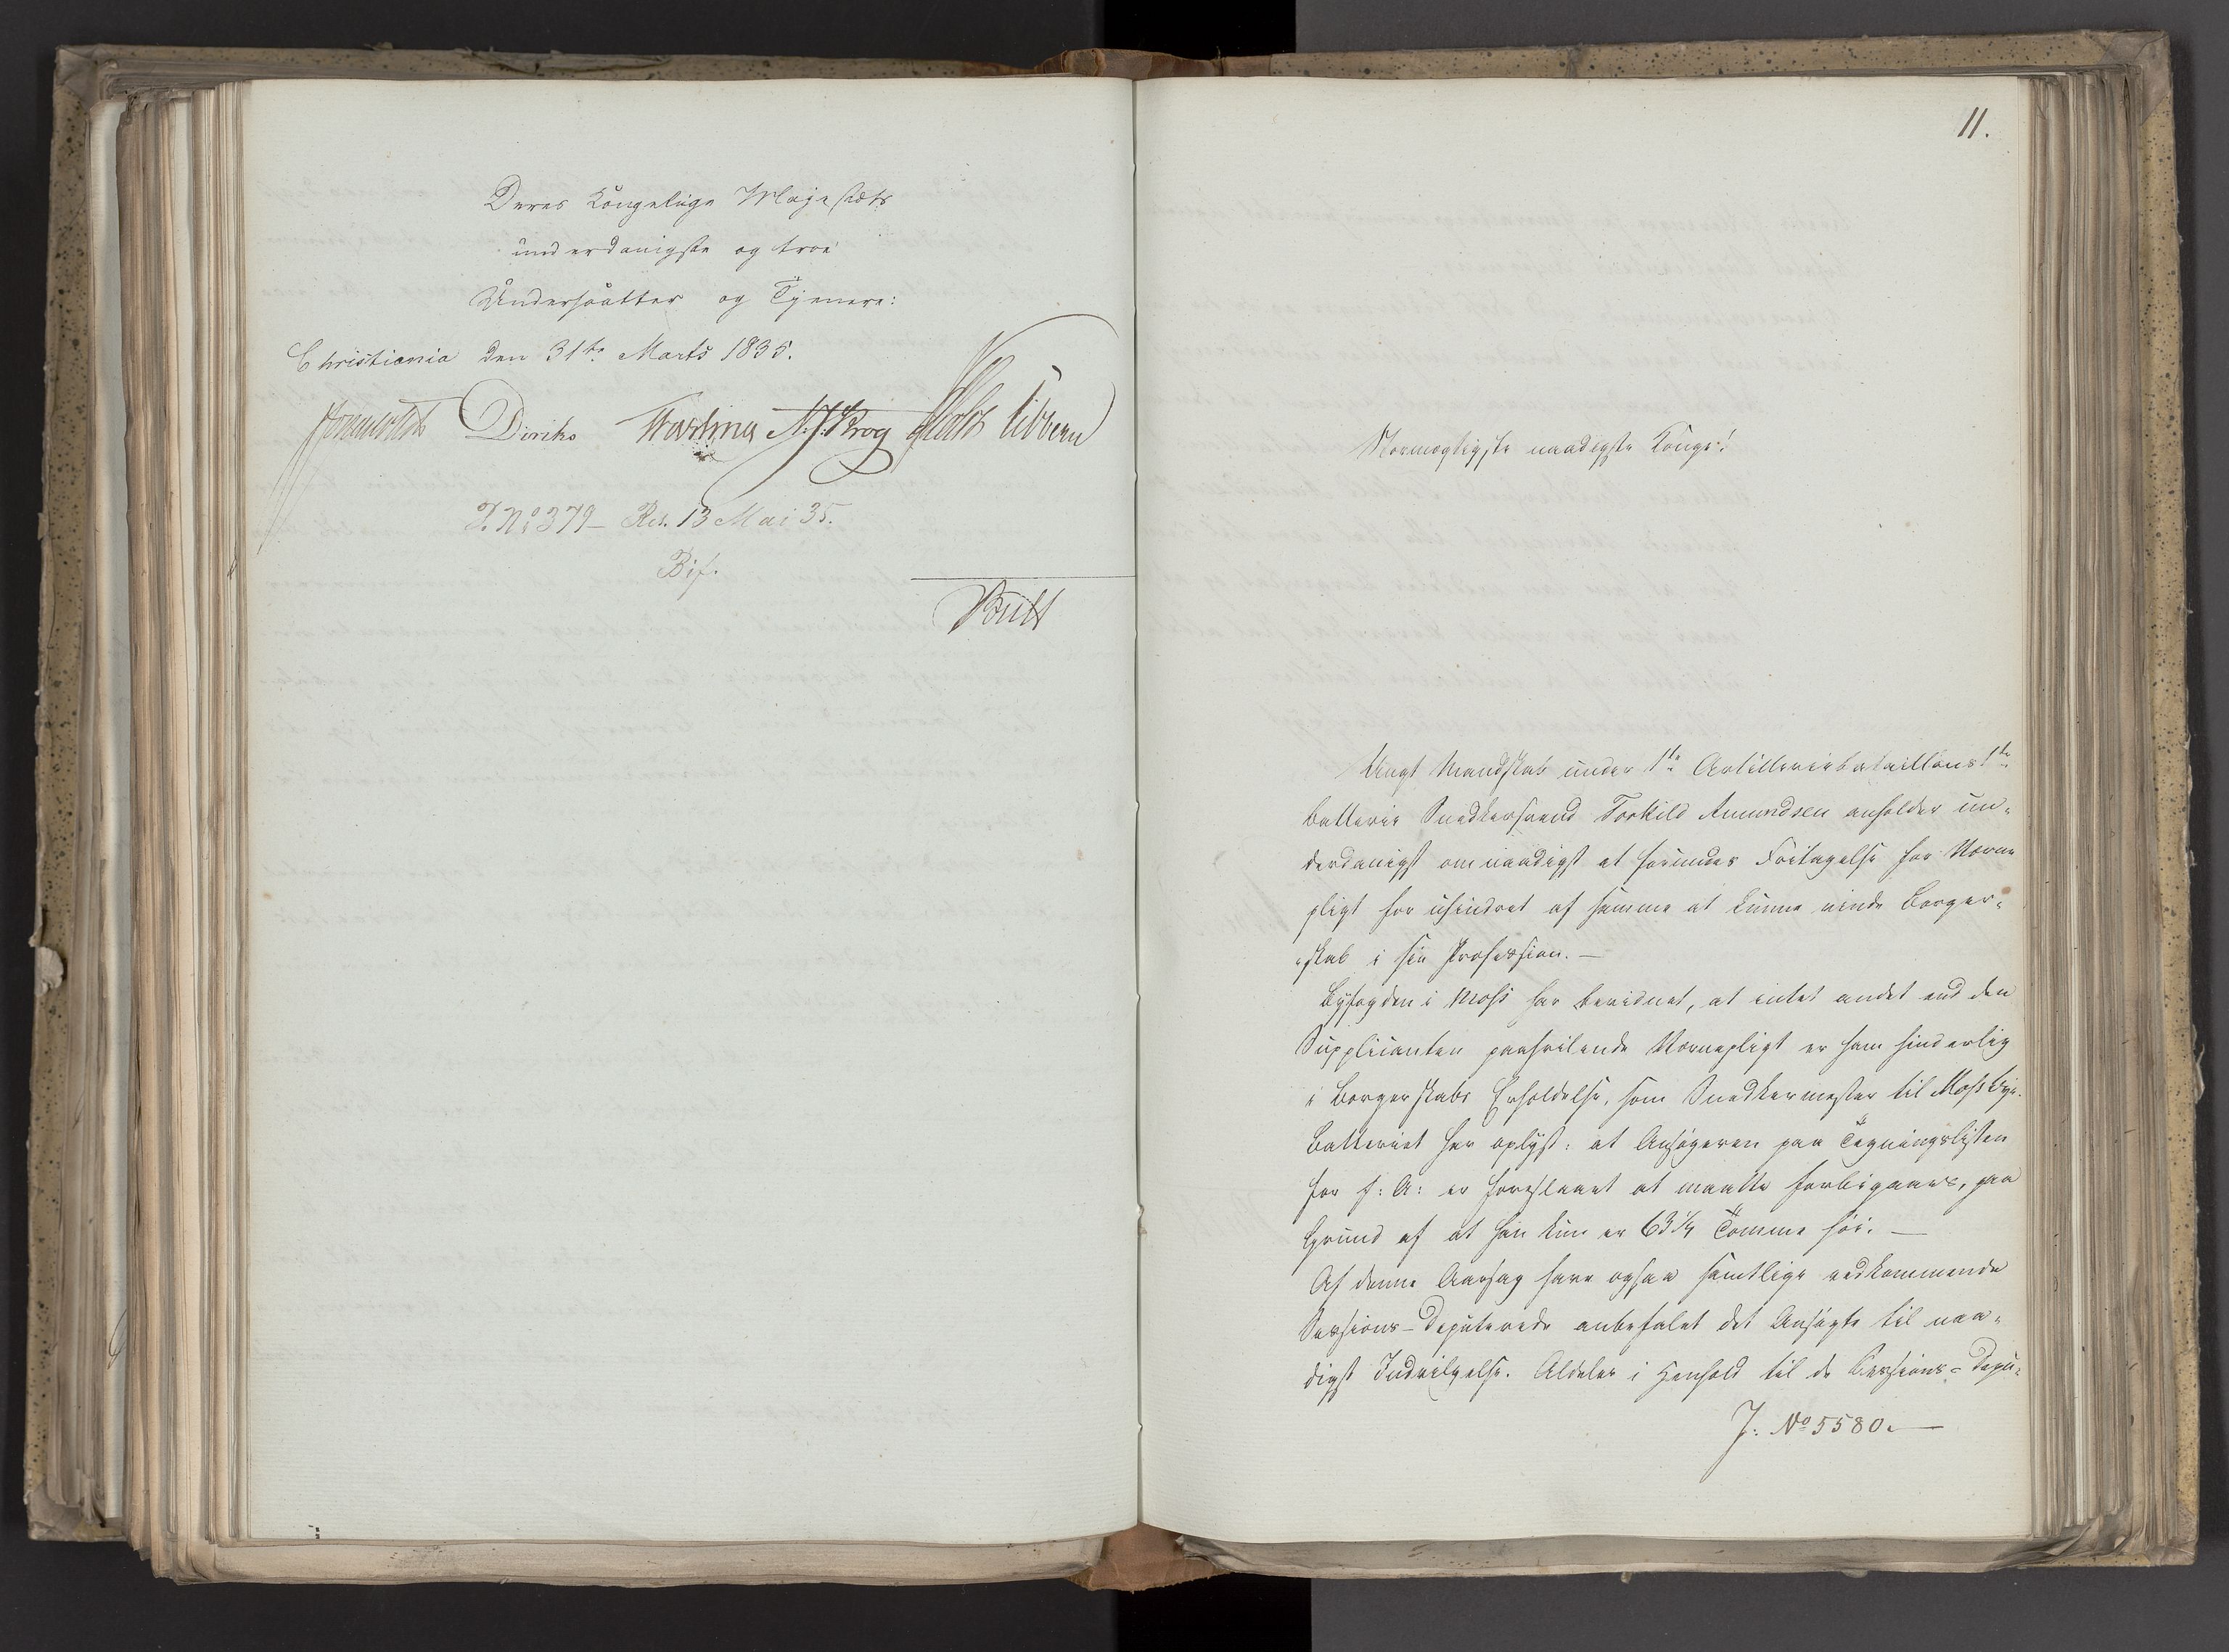 Deres Kongelige Majestæts
underdanigste og troe
Undersaatter og Tjenere:
Christiania den 31te Marts 1835.
Diriks N. J. Krog Holst Vibe
J. No 379 - Res. 13 Mai 35.
Bif.
Bull
11.
Stormægtigste naadigste Konge!
Ungt Mandskab under 1te Artilleriebataillons 1te
Batterie Snedkersvend Torkild Amundsen anholder un-
derdanigst om naadigst at forundes Fritagelse for Værne
pligt for uhindret af samme at kunne vinde Borger-
-skab i sin Profession. —
Byfogden i Moss har bevidnet, at intet andet end den
Supplicanten paahvilende Værnepligt er ham hinderlig
i Borgerskabs Erholdelse, som Snedkermester til Moss Bye.
Batteriet har oplyst: at Ansøgeren paa Tegningslisten
for f: A: er foreslaaet at maatte forbigaaes, paa
Grund af at han kun er 63 1/4 Tomme høi. —
Af denne Aarsag have ogsaa samtlige vedkommende
Sessions-Deputerede anbefalet det Ansøgte til naa-
digst Indvilgelse. Aldeles i Henhold til de Sessions-Depu-
J: No 5580. —